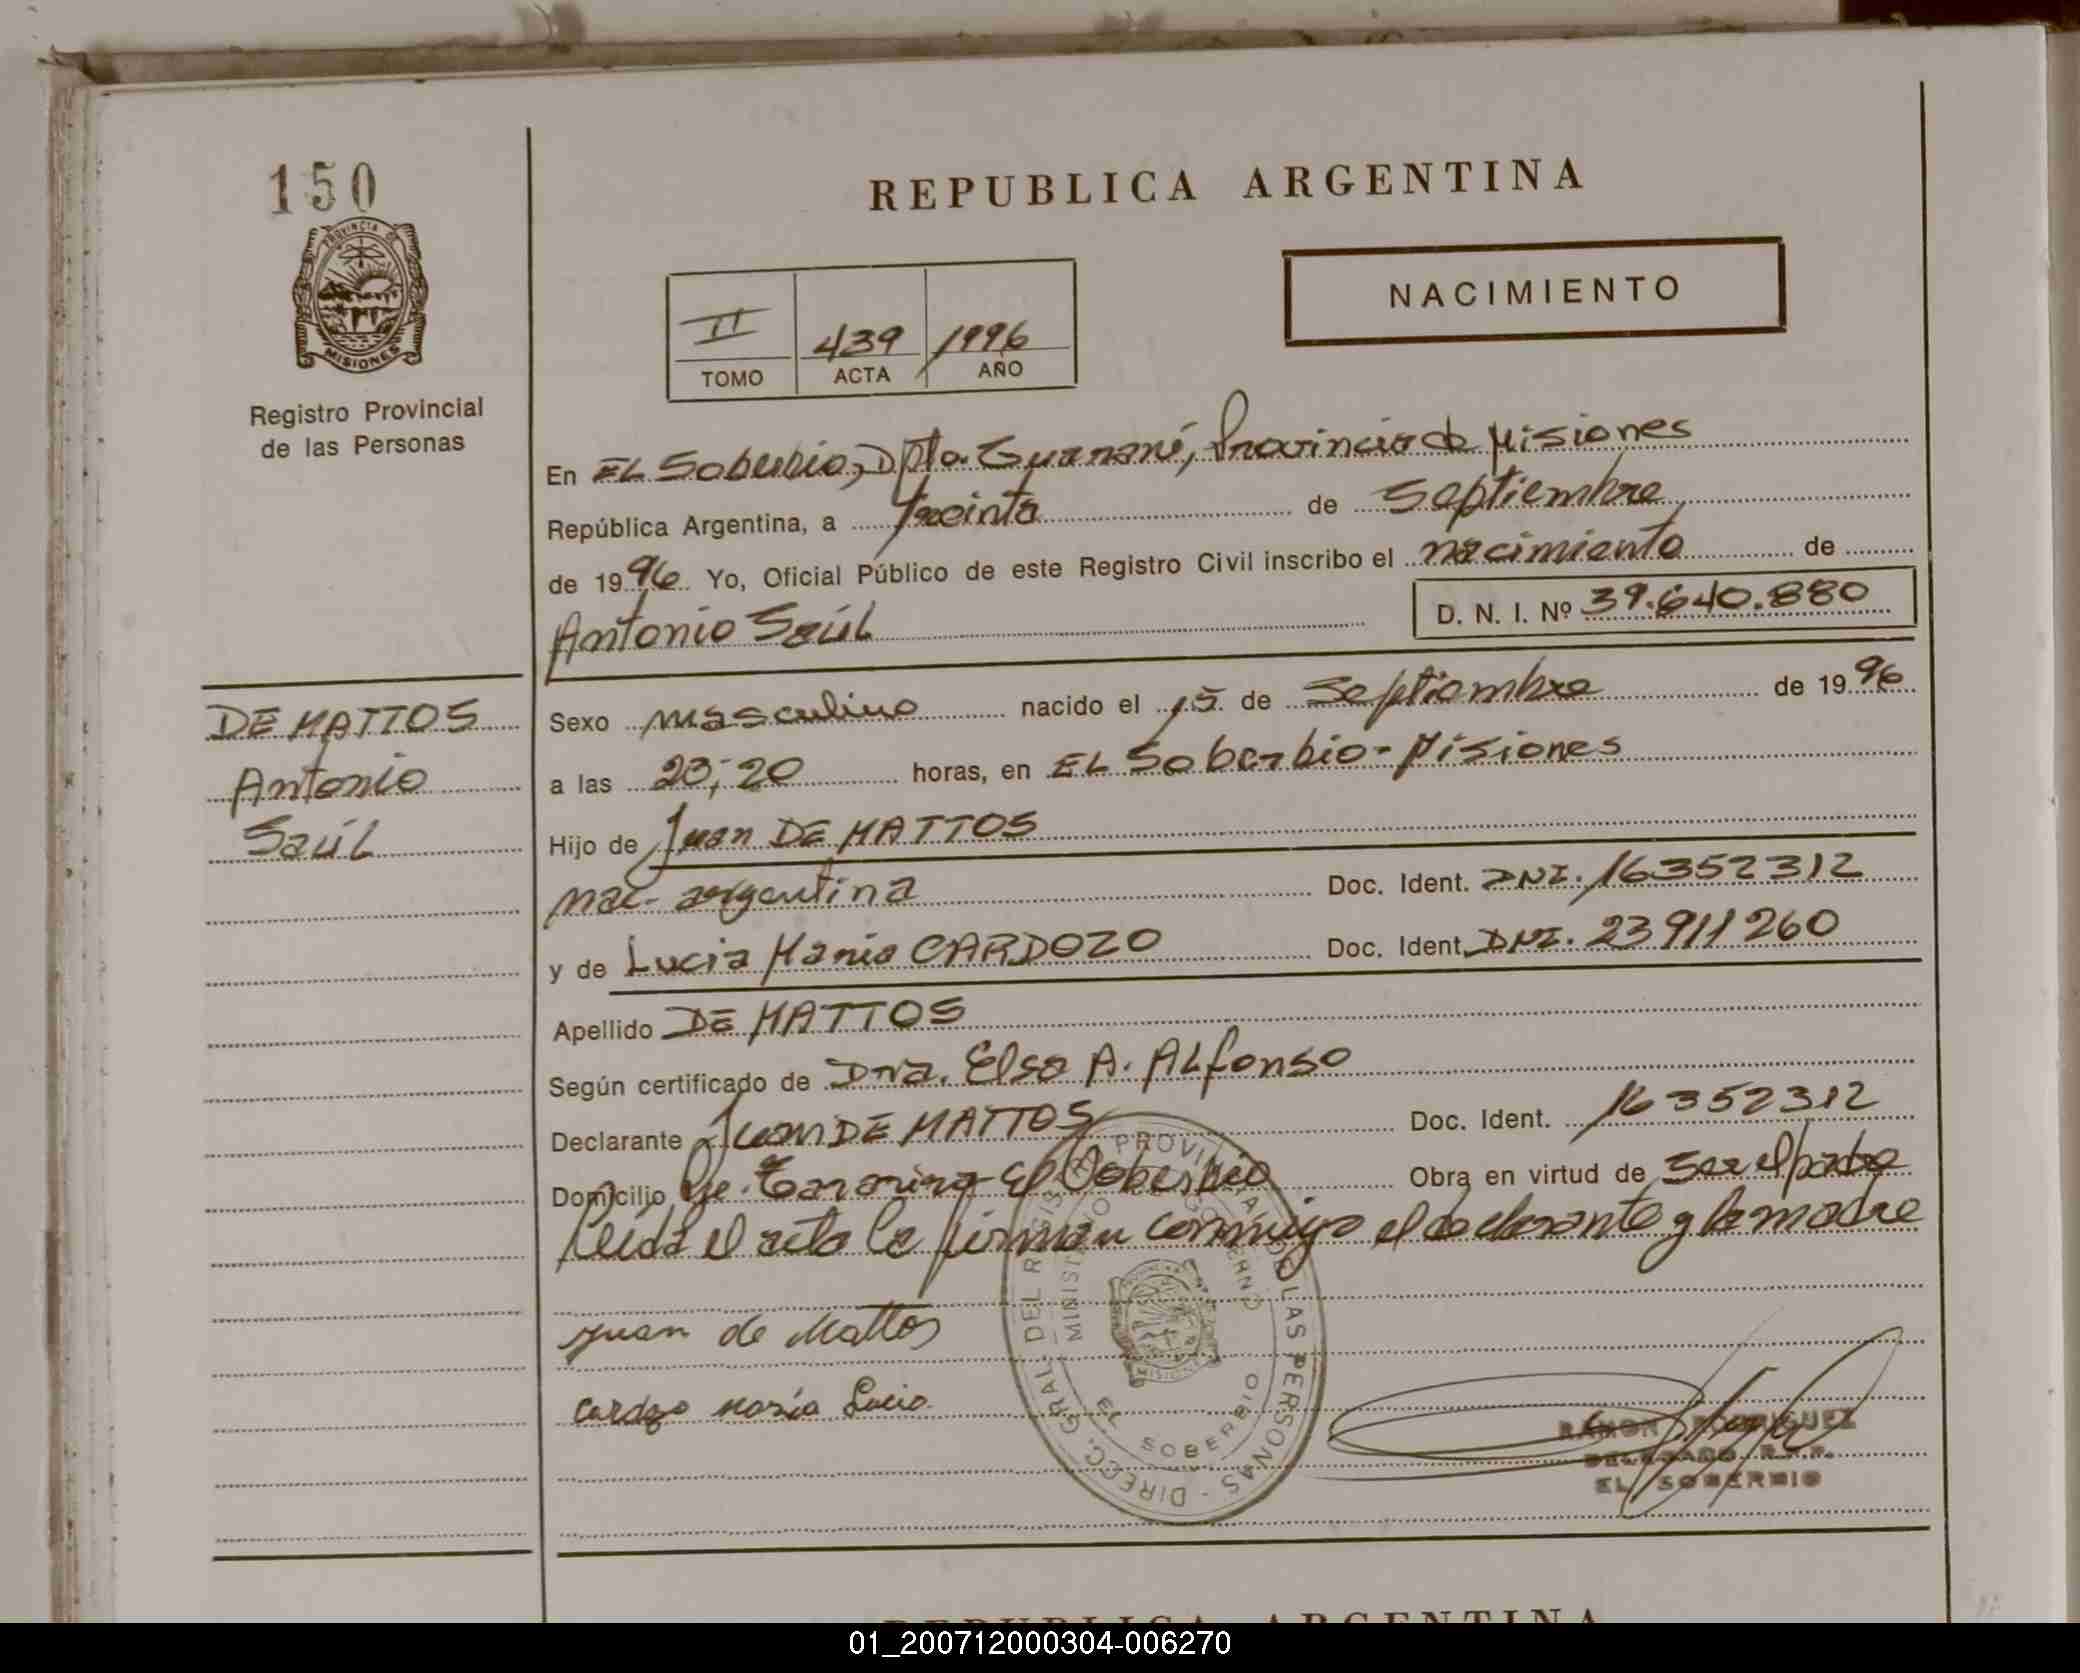 150
PROVINCIA DE
MISIONES
Registro Provincial
de las Personas
REPUBLICA ARGENTINA
NACIMIENTO
II 439 1996
TOMO ACTA AÑO
En EL Soberbio, Dpto. Guaraní, Provincia de Misiones
República Argentina, a treinta de Septiembre
de 1996 Yo, Oficial Público de este Registro Civil inscribo el nacimiento de
Antonio Saúl D. N. I. Nº 39.640.880
DE MATTOS
Antonio
Saúl
Sexo masculino nacido el 15 de Septiembre de 1996
a las 23;20 horas, en EL Soberbio - Misiones
Hijo de Juan DE MATTOS
nac. argentina Doc. Ident. DNI. 16352312
y de Lucia Maria CARDOZO Doc. Ident. DNI. 23911260
Apellido DE MATTOS
Según certificado de Dra. Elsa A. ALfonso
Declarante Juan DE MATTOS Doc. Ident. 16352312
Domicilio El Soberbio Obra en virtud de ser el padre
Leída el acta la firman conmigo el declarante y la madre
Juan de Mattos
Cardozo María Lucia
DIRECC. GRAL. DEL REGIS PROVINCIAL DE LAS PERSONAS -
MINISTERIO DE GOBIERNO
MISIONES
EL SOBERBIO
RAMON RODRIGUEZ
DELEGADO R.P.P.
EL SOBERBIO
REPUBLICA ARGENTINA
01_200712000304-006270